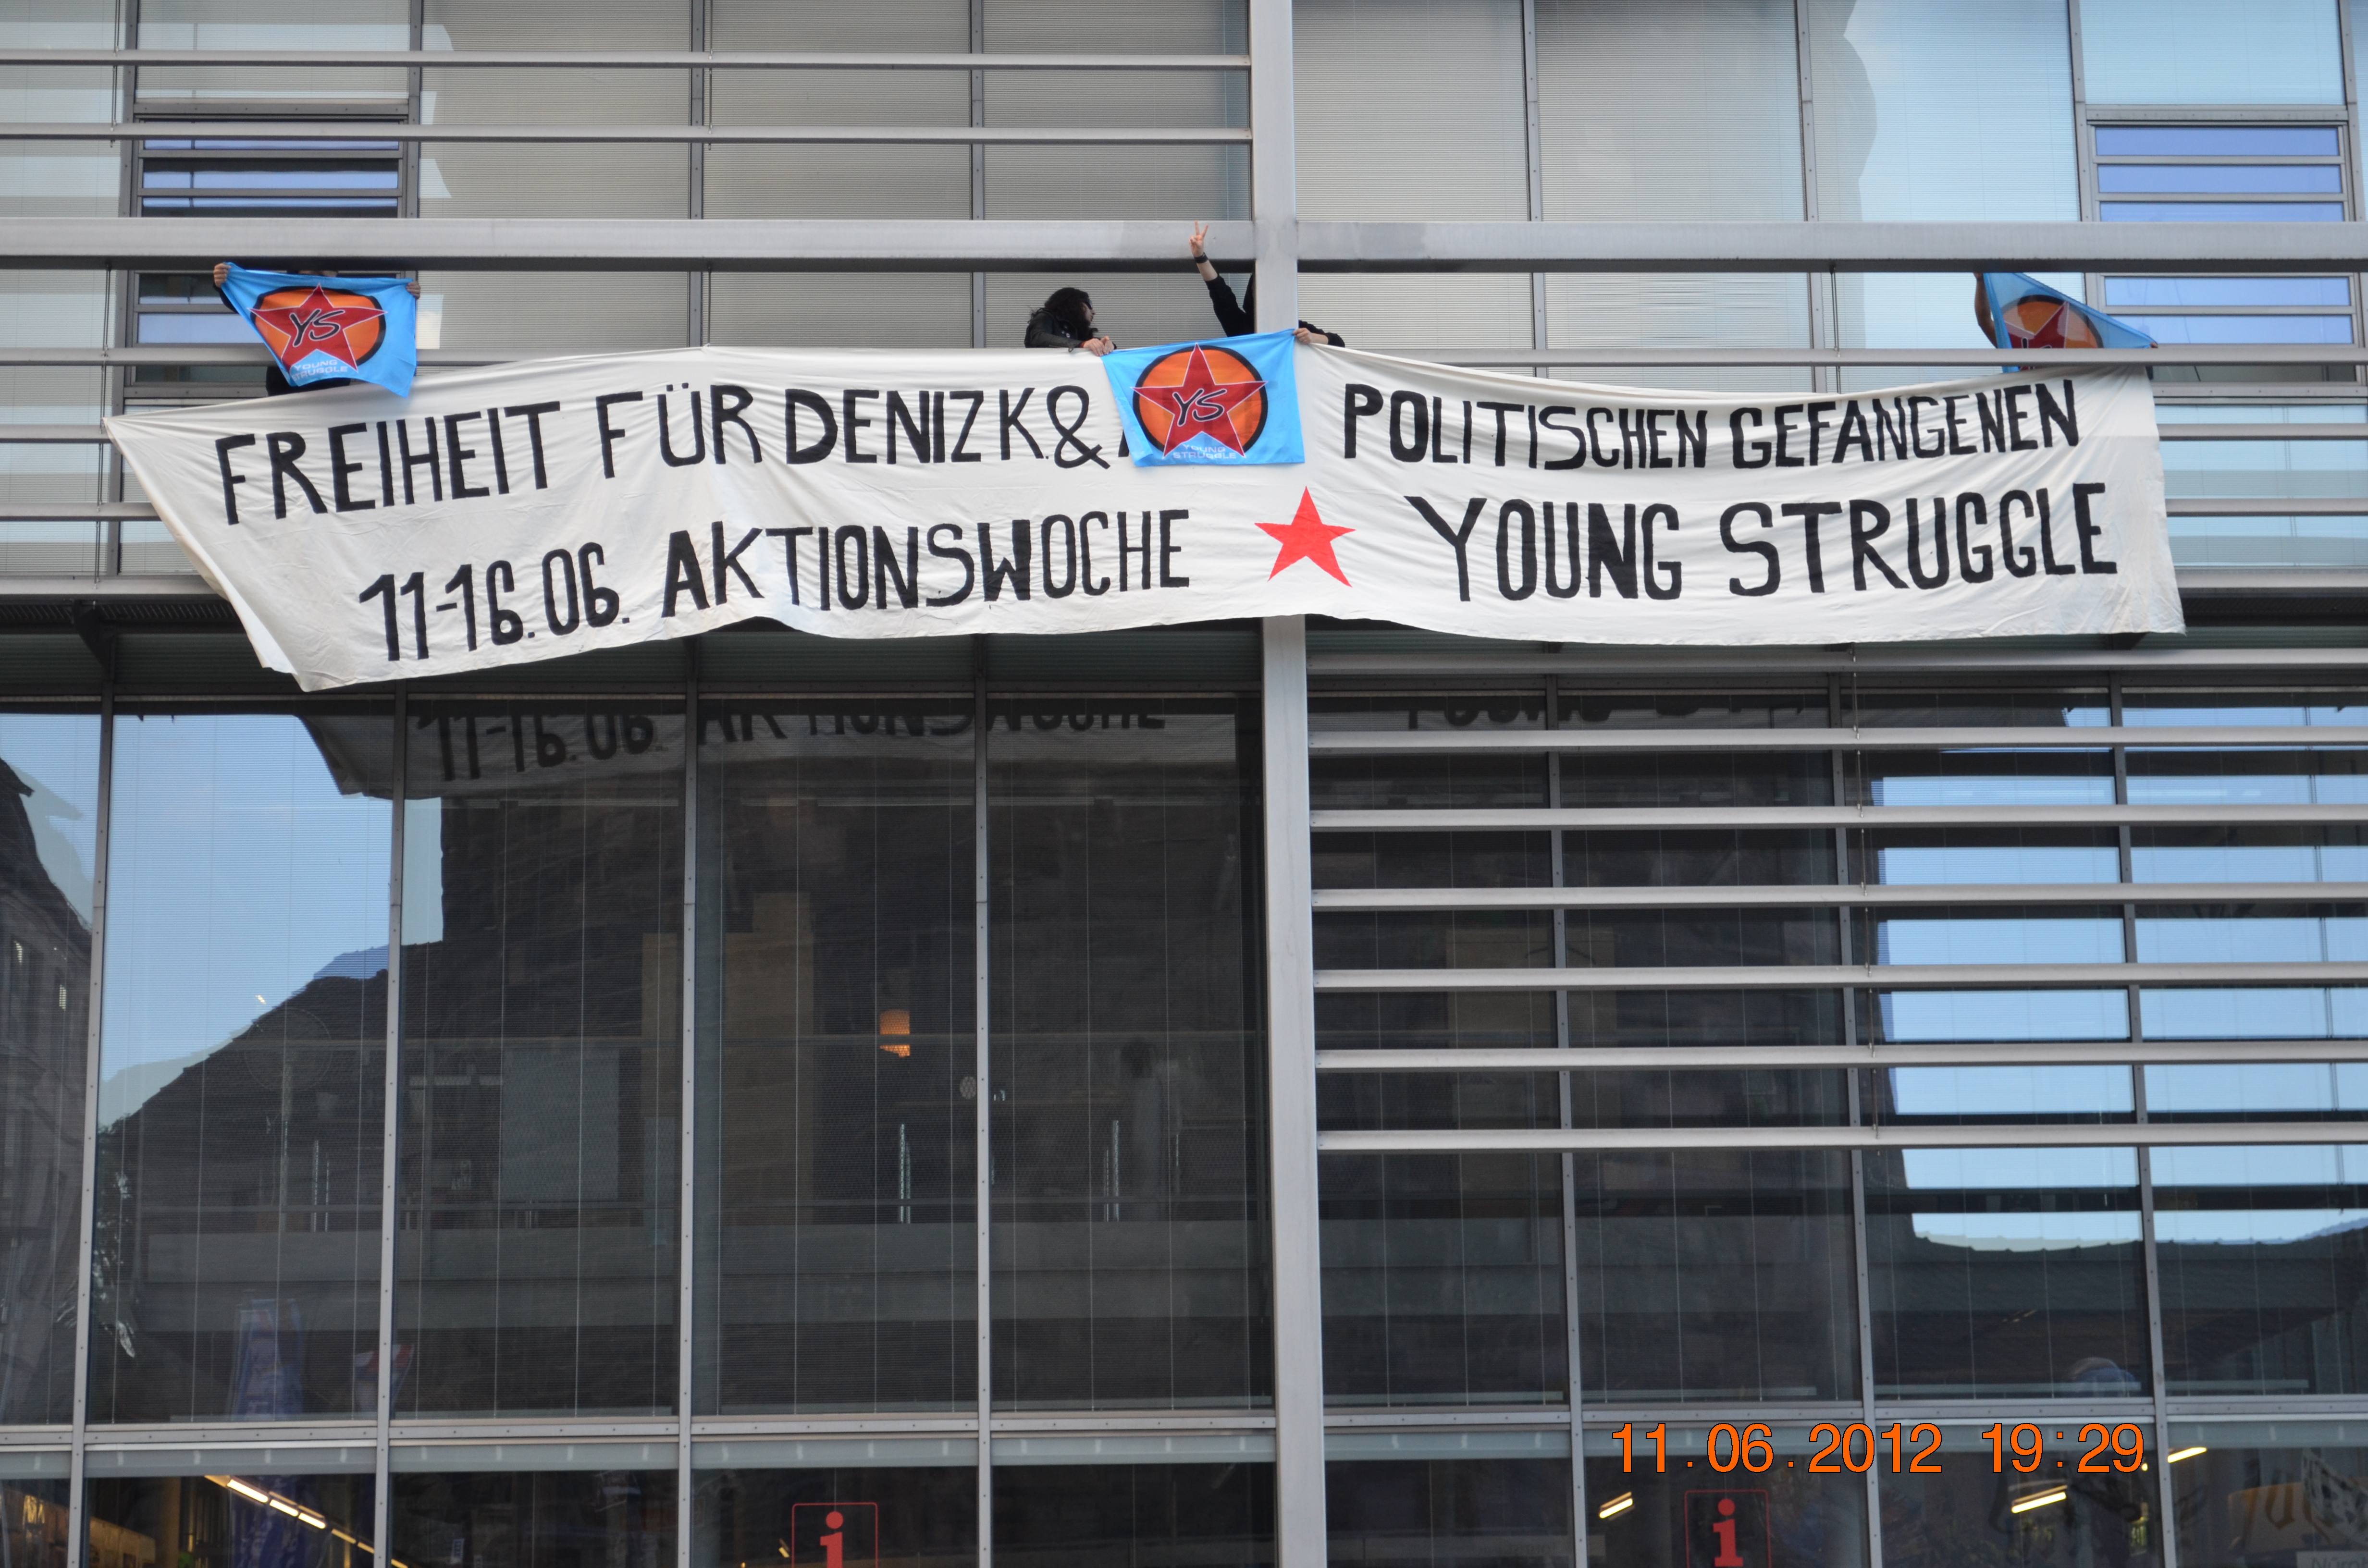 FREIHEIT FÜR DENIZ K. & POLITISCHEN GEFANGENEN
11-16.06. AKTIONSWOCHE YOUNG STRUGGLE
YS
YOUNG STRUGGLE
YS
YOUNG STRUGGLE
YS
11-16.06. AKTIONSWOCHE
i
i
11.06.2012 19:29